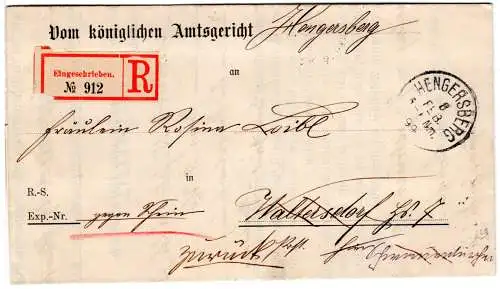 Vom königlichen Amtsgericht Hengersberg
Eingeschrieben.
R
№ 912
an
HENGERSBERG
8
FEB
99
Fräulein Rosina Loibl
in
R.-S.
Exp.-Nr. gegen Schein
Waltersdorf Hs. 7
zurück Post.